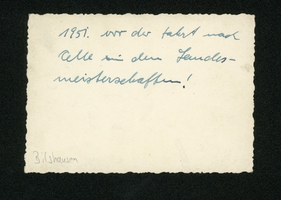 1951. vor der Fahrt nach
Celle zu den Landes-
meisterschaften!
Bilshausen